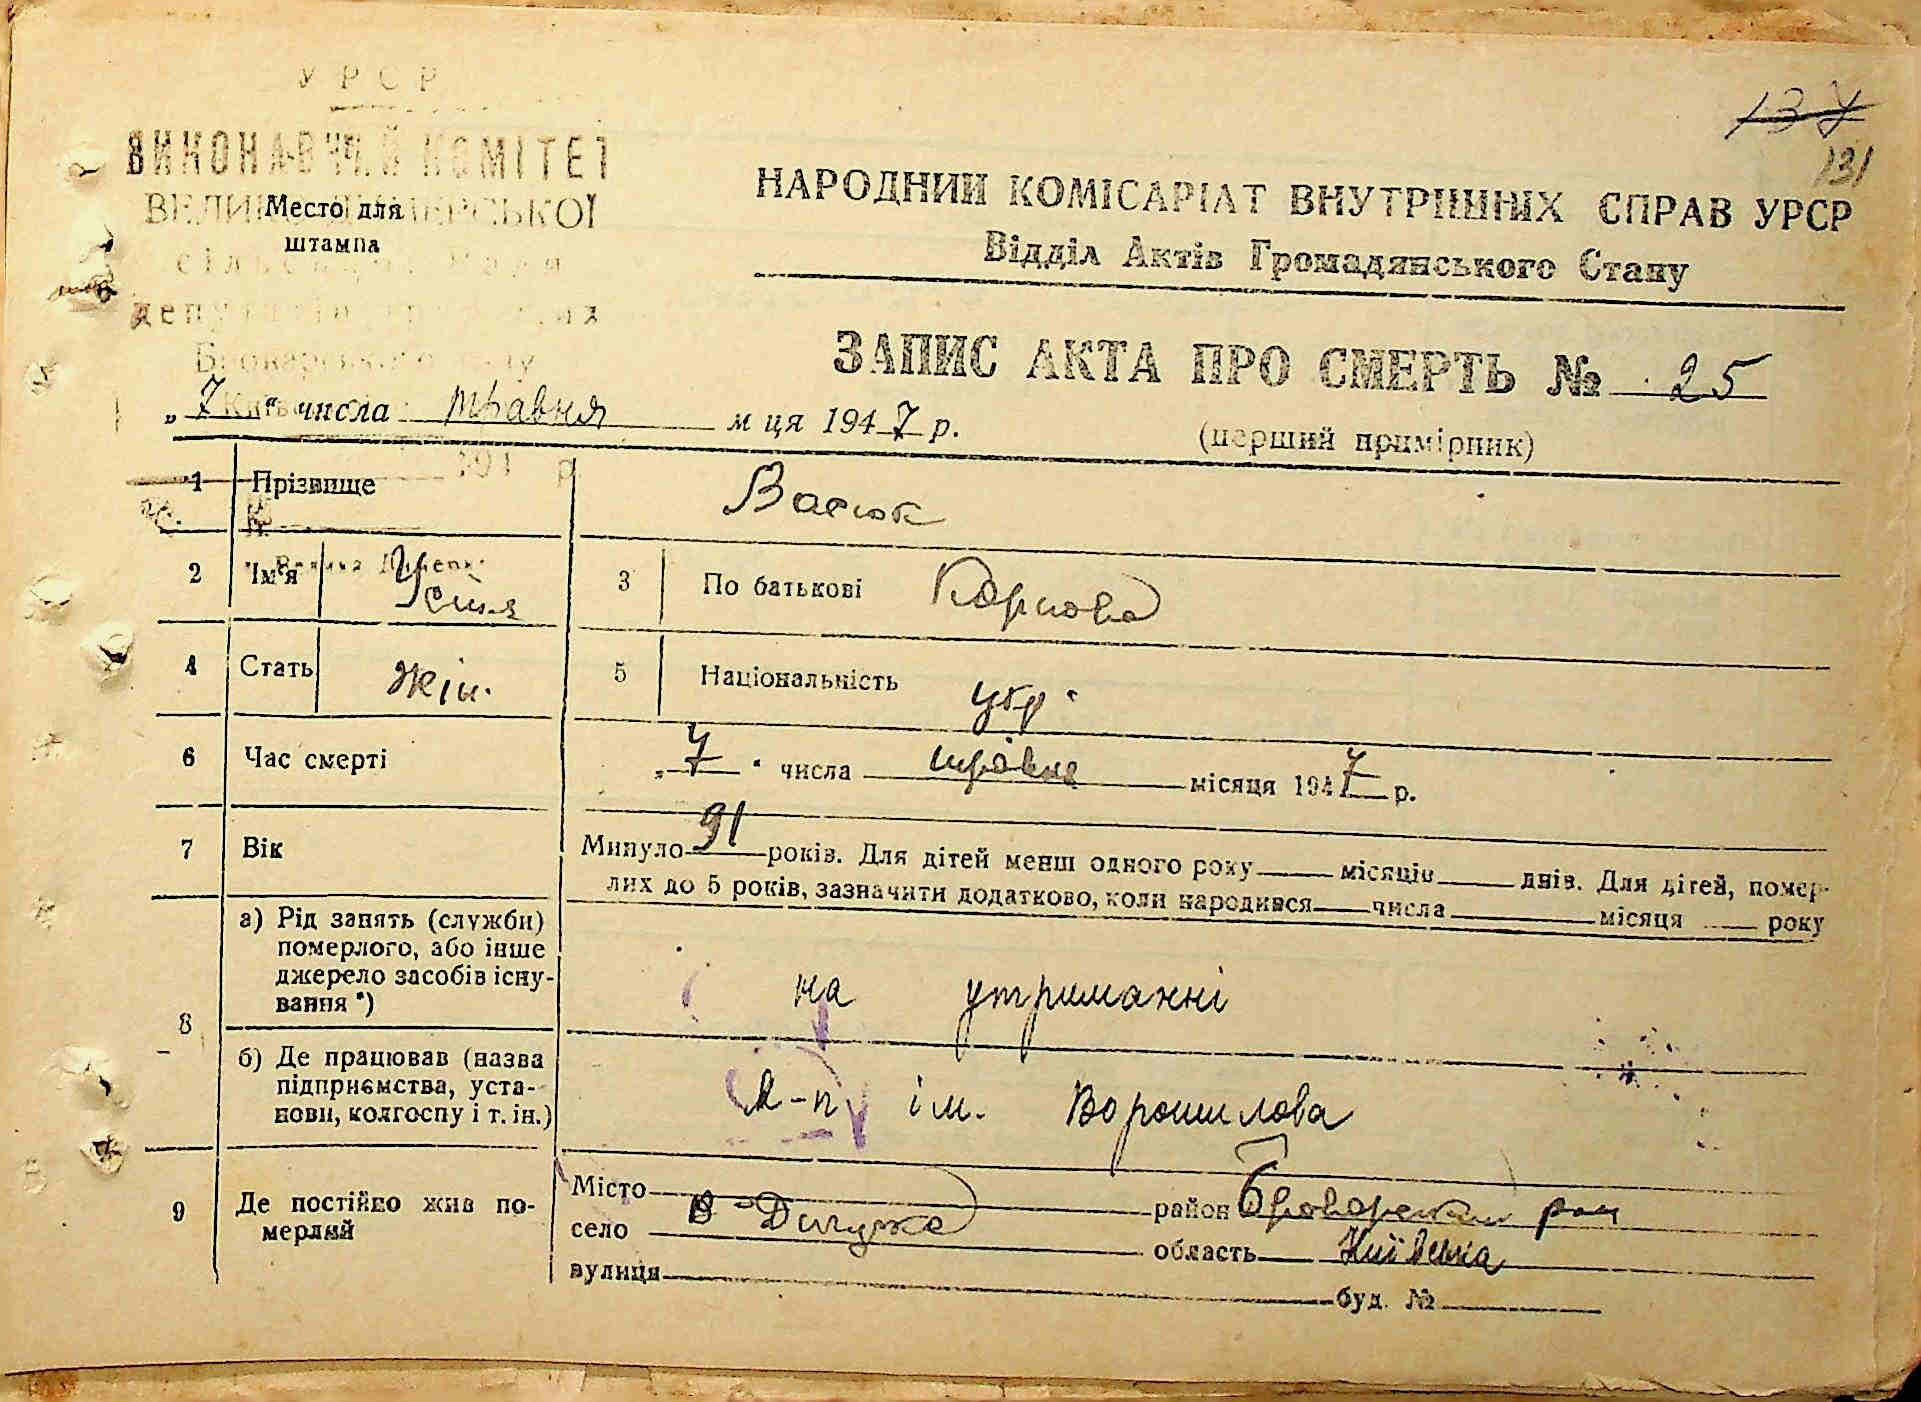 УРСР
ВИКОНАВЧИЙ КОМІТЕТ
137
131
Место для
штампа
НАРОДНИЙ КОМІСАРІАТ ВНУТРІШНІХ СПРАВ УРСР
Відділ Актів Громадянського Стану
ЗАПИС АКТА ПРО СМЕРТЬ № 25
„7“ числа травня м ця 1947 р.
(перший примірник)
1 Прізвище Васюк
2 Ім'я 3 По батькові Карпова
4 Стать жін. 5 Національність укр.
6 Час смерті „7“ числа травня місяця 1947 р.
7 Вік Минуло 91 років. Для дітей менш одного року місяців днів. Для дітей, помер-
лих до 5 років, зазначити додатково, коли народився числа місяця року
8 а) Рід занять (служби)
померлого, або інше
джерело засобів існу-
вання *) на утриманні
б) Де працював (назва
підприємства, уста-
нови, колгоспу і т. ін.) к-п ім. Ворошилова
9 Де постійно жив по-
мерлий
Місто район Броварський рай
село В-Димерка область Київська
вулиця буд. №